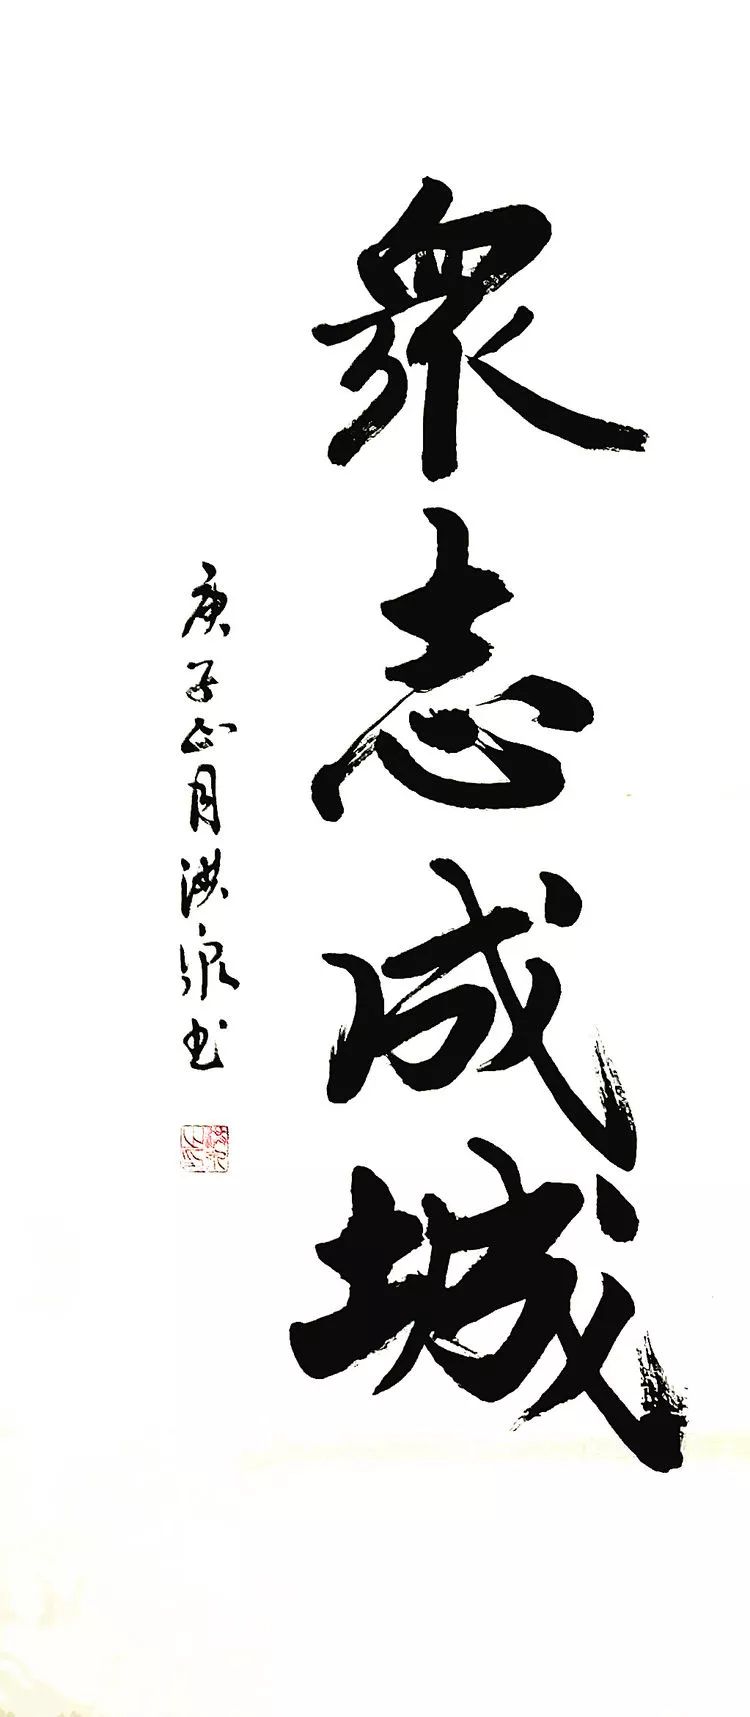 眾志成城
庚子正月洪泉书